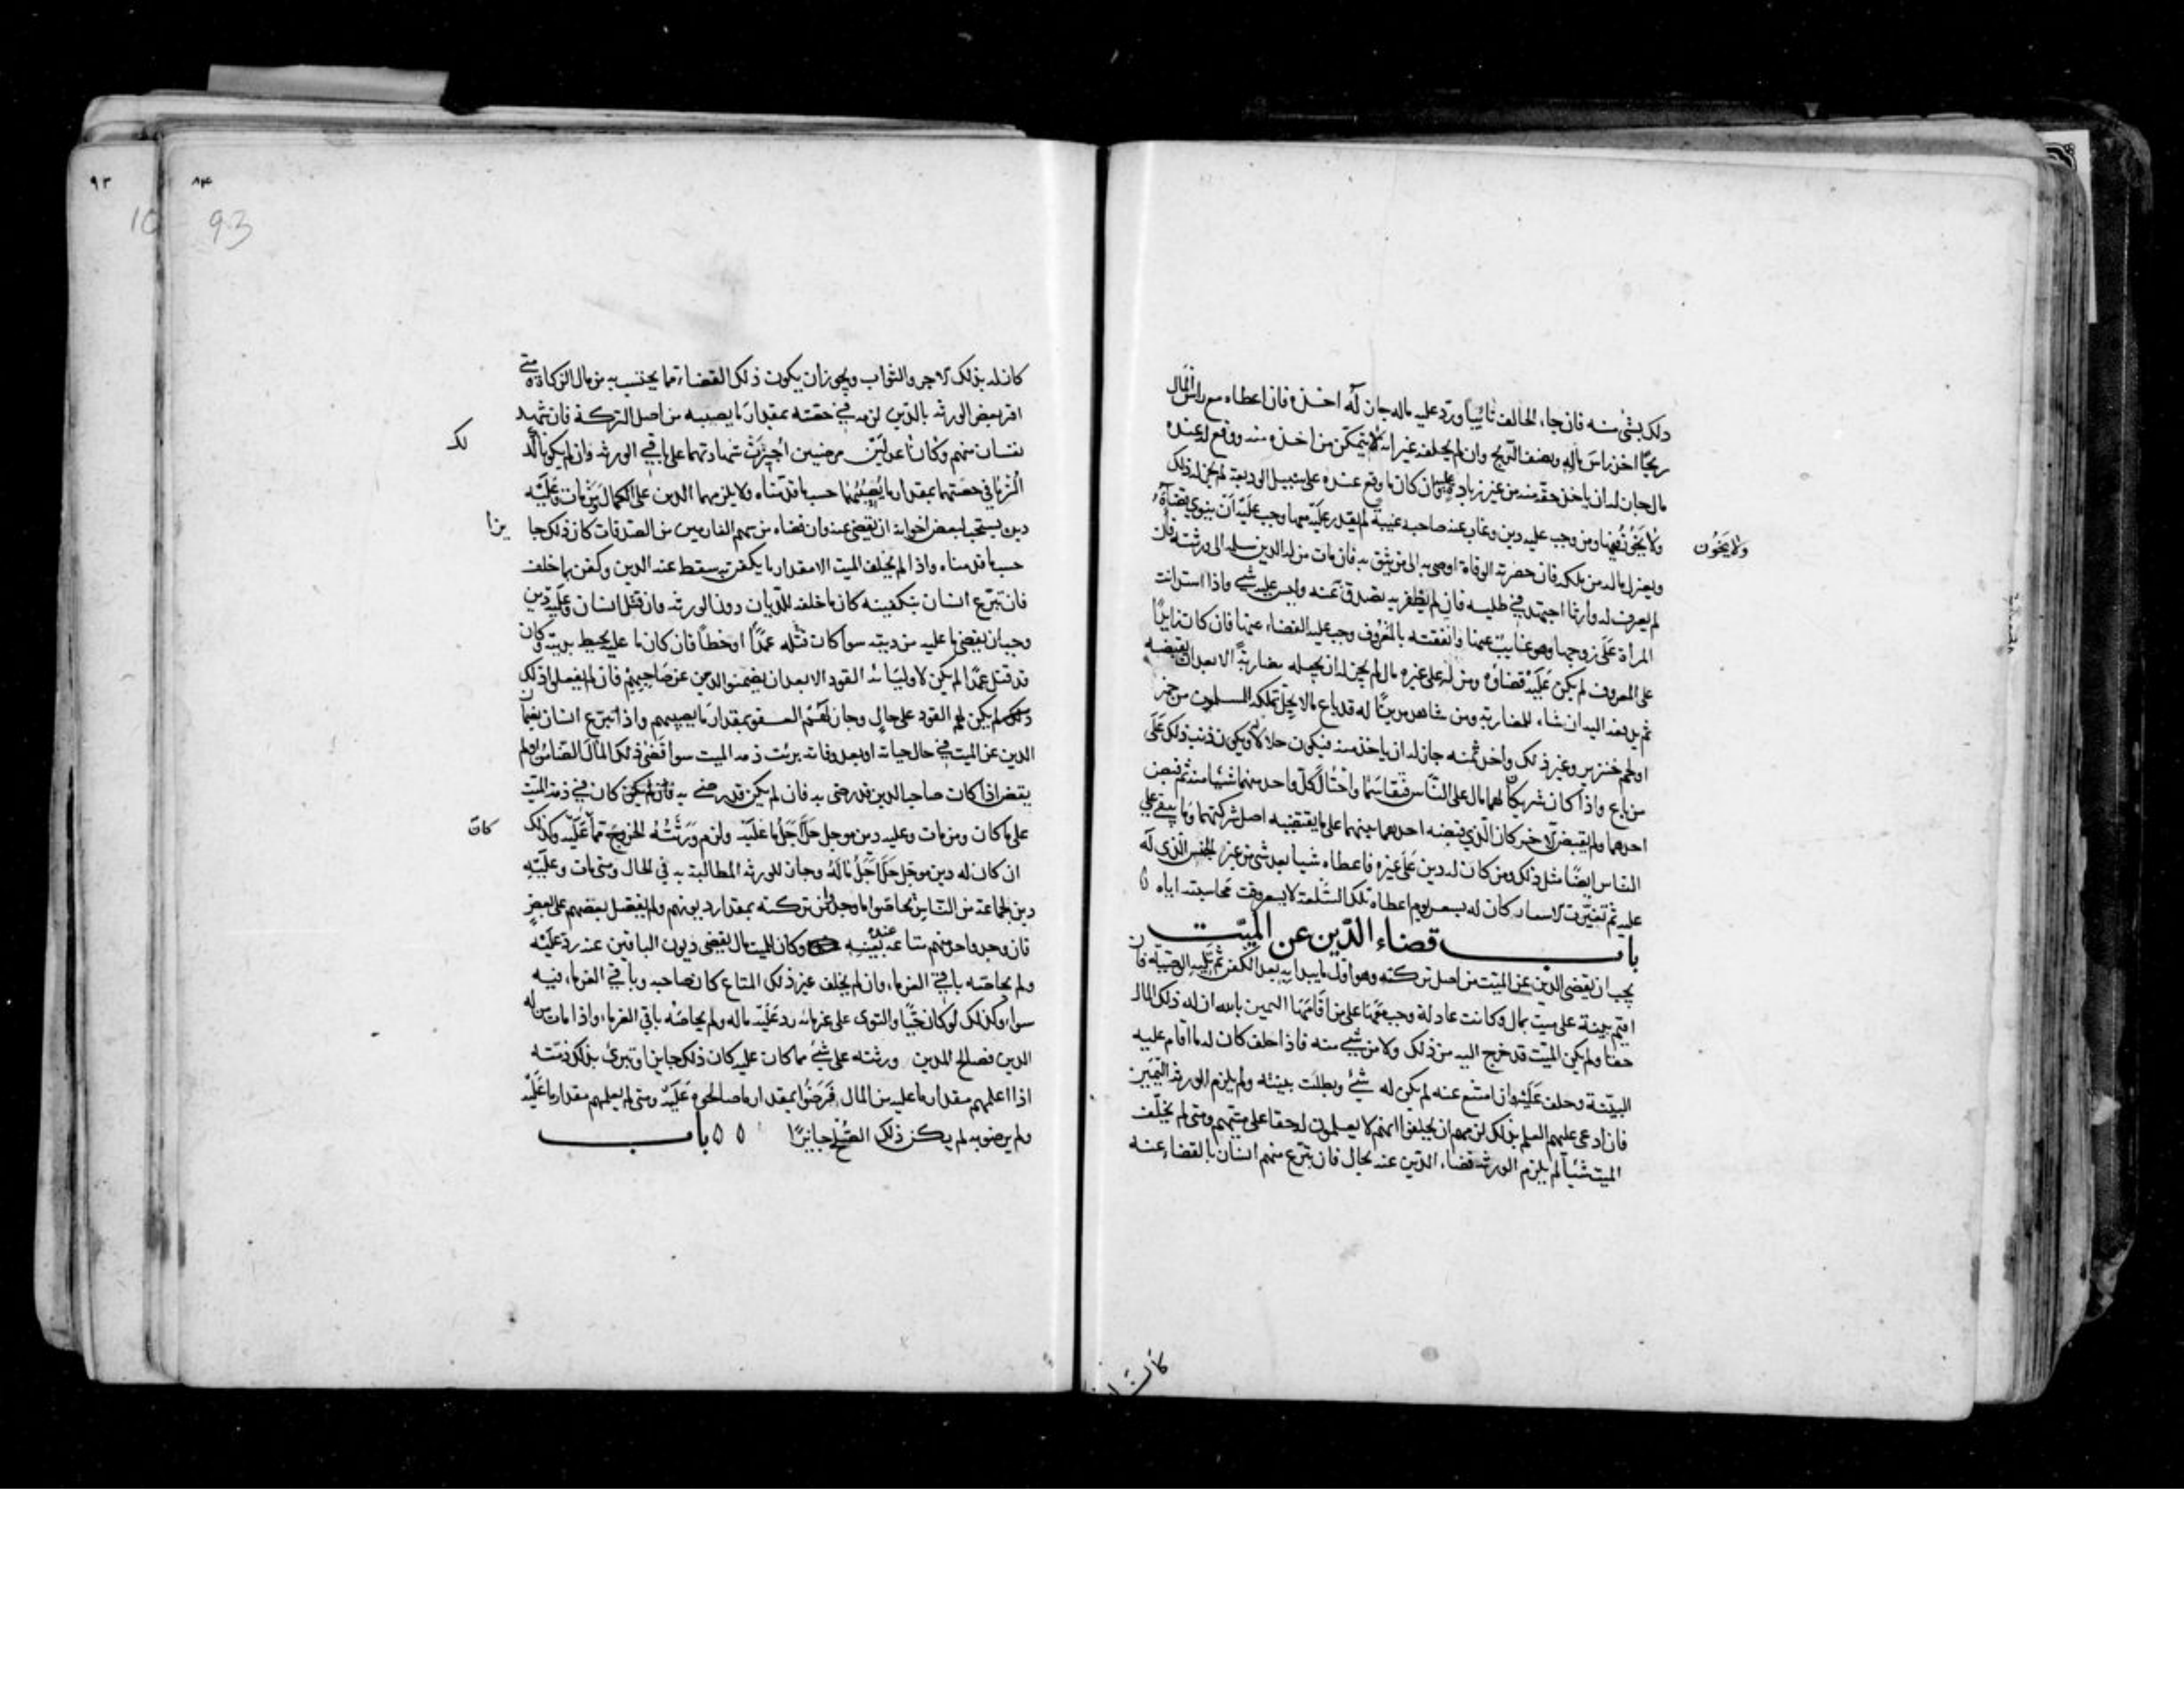 ذلك بشئ منه فان جاء الحالف تائبا ورد عليه ماله جاز له اخذه فان اعطاه مع راس المال
ربحًا اخذ راس ماله ونصف الربح وان لم يحلفه غير انه لا يتمكن من اخذه منه ووقع له عنده
مال جاز له ان ياخذ حقه منه من غير زيادة عليه وان كان ما وقع عنده على سبيل الوديعة لم يجز له ذلك
ولا يخونه فيها ومن وجب عليه دين وغاب عنه صاحبه غيبة لم يقدر عليه معها وجب عليه أن ينوي قضاءه
ولا يخون
ويعزل ماله من ملكه فان حضرته الوفاة اوصى به الى من يثق به فان مات من له الدين سلمه الى ورثته فان
لم يعرف له وارثا اجتهد في طلبه فان لم يظفر به تصدق به عنه وليس عليه شئ واذا استدانت
المرأة على زوجها وهو غائب عنها وانفقته بالمعروف وجب عليه القضاء عنها فان كان زايدًا
على المعروف لم يكن عليه قضاؤه ومن له على غيره مال لم يجز له ان يجعله مضاربة الا بعد ان يقبضه
ثم يدفعه اليه ان شاء للمضاربة ومن شاهد مدينًا له قد باع ما لا يحل تملكه للمسلمين من خمر
او لحم خنزير وغير ذلك واخذ ثمنه جاز له ان ياخذ منه فيكون حلالا له ويكون ذنب ذلك على
من باع واذا كان شريكان لهما مال على الناس فتقاسما واحتال كل واحد منهما شيئا منه ثم قبض
احدهما ولم يقبض الآخر كان الذي قبضه احدهما بينهما على ما يقتضيه اصل شركتهما وما يبقى على
الناس ايضًا مثل ذلك ومن كان له دين على غيره فاعطاه شيا بعد شئ من غير الجنس الذي له
عليه ثم تغيرت الاسعار كان له بسعر يوم اعطاه تلك السلعة لا بسعر وقت محاسبته اياه ٥
باب قضاء الدين عن الميت
يجب ان يقضى الدين عن الميت من اصل تركته وهو اول ما يبدا به بعد الكفن ثم تليه الوصية فان
اقيم بينة على ميت بمال وكانت عادلة وجب معها على من اقامها اليمين بالله ان له ذلك المال
حقا ولم يكن الميت قد خرج اليه من ذلك ولا من شئ منه فاذا حلف كان له ما اقام عليه
البينة وحلف عليه وان امتنع عنه لم يكن له شئ وبطلت بينته ولم يلزم الورثة اليمين
فان ادعى عليهم العلم بذلك لزمهم ان يحلفوا انهم لا يعلمون له حقا على ميتهم ومتى لم يخلف
الميت شيئا لم يلزم الورثة قضاء الدين عنه بحال فان تبرع منهم انسان بالقضاء عنه
كان له
٩٣
٨٣
10 93
كان له بذلك الاجر والثواب ويجوز ان يكون ذلك القضاء مما يحتسب به من مال الزكاة متى
اقر بعض الورثة بالدين لزمه في حقته بمقدار ما يصيبه من اصل التركة فان شهد
نفسان منهم وكانا عدلين مرضيين اجيزت شهادتهما على باقي الورثة وان لم يكونا
الزما في حصتهما بمقدار ما يصيبهما حسب ما قدمناه ولا يلزمهما الدين على الكمال ومن مات وعليه
دين يستحب لبعض اخوانه ان يقضي عنه وان قضاه من سهم الغارمين من الصدقات كان ذلك جا
يزا
حسب ما قدمناه واذا لم يخلف الميت الا مقدار ما يكفن به سقط عنه الدين وكفن بما خلف
فان تبرع انسان بتكفينه كان ما خلفه للديان دون الورثة وان قتل انسان وعليه دين
وجب ان يقضي ما عليه من ديته سوا كان قتله عمدًا او خطأ فان كان ما عليه يحيط بديته وكان
قد قتل عمدًا لم يكن لاوليائه القود الا بعد ان يضمنوا الدين عن صاحبهم فان لم يفعلوا ذلك
لم يكن لهم القود على حال وجاز لهم العفو بمقدار ما يصيبهم واذا تبرع انسان بضمان
الدين عن الميت في حال حياته او بعد وفاته برئت ذمة الميت سوا قضى ذلك المال الضامن او لم
يقض اذا كان صاحب الدين قد رضي به فان لم يكن قد رضي به كان في ذمة الميت
على ما كان ومن مات وعليه دين موجل حل اجل ما عليه ولزم ورثته الخروج مما عليه وكذلك
كان
ان كان له دين موجل حل اجل ماله وجاز للورثة المطالبة به في الحال ومتى مات وعليه
دين لجماعة من الناس تحاصوا ما وجد من تركته بمقدار ديونهم ولم يفضل بعضهم على بعض
فان وجد واحد منهم متاعه بعينه عنده وكان للميت مال يقضى ديون الباقين عنه رد عليه
ولم يحاصه باقي الغرماء وان لم يخلف غير ذلك المتاع كان صاحبه وباقي الغرماء فيه
سواء وكذلك لو كان حيًا والتوى على غرمائه رد عليه ماله ولم يحاصه باقي الغرماء واذا مات من له
الدين فصالح المدين ورثته على شئ مما كان عليه كان ذلك جايزا وتبرئ بذلك ذمته
اذا اعلمهم مقدار ما عليه من المال فرضوا بمقدار ما صالحوه عليه ومتى لم يعلمهم مقدار ما عليه
ولم يرضوا به لم يكن ذلك الصلح جائزًا ٥ ٥ باب